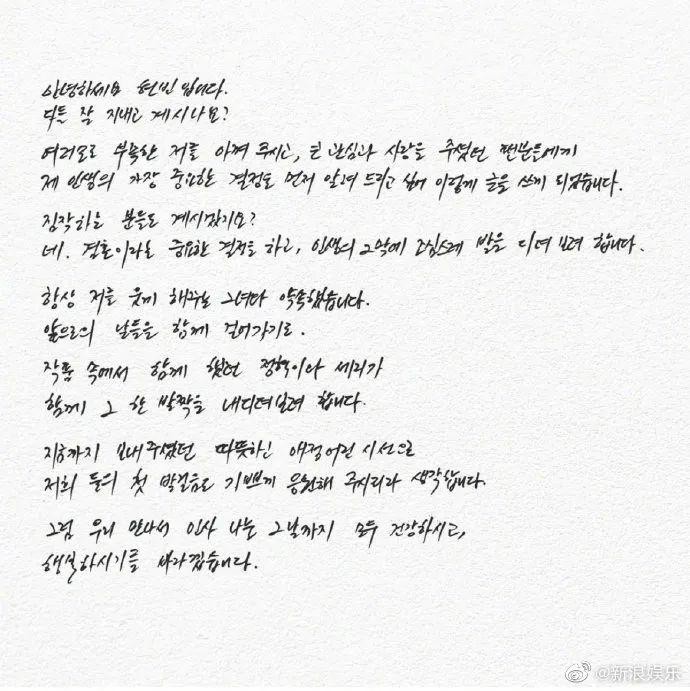 안녕하세요 현빈입니다.
다들 잘 지내고 계시나요?
여러모로 부족한 저를 아껴 주시고, 큰 관심과 사랑을 주셨던 팬분들에게
제 인생의 가장 중요한 결정을 먼저 알려 드리고 싶어 이렇게 글을 쓰게 되었습니다.
짐작하는 분들도 계시겠지요?
네. 결혼이라는 중요한 결정을 하고, 인생의 2막에 조심스레 발을 디뎌 보려 합니다.
항상 저를 웃게 해주는 그녀와 약속했습니다.
앞으로의 날들을 함께 걸어가기로.
작품 속에서 함께 했던 정혁이와 세리가
함께 그 한 발짝을 내디뎌보려 합니다.
지금까지 보내주셨던 따뜻하신 애정어린 시선으로
저희 둘의 첫 발걸음도 기쁘게 응원해 주시리라 생각합니다.
그럼 우리 만나서 인사 나눌 그날까지 모두 건강하시고,
행복하시기를 바라겠습니다.
@新浪娱乐